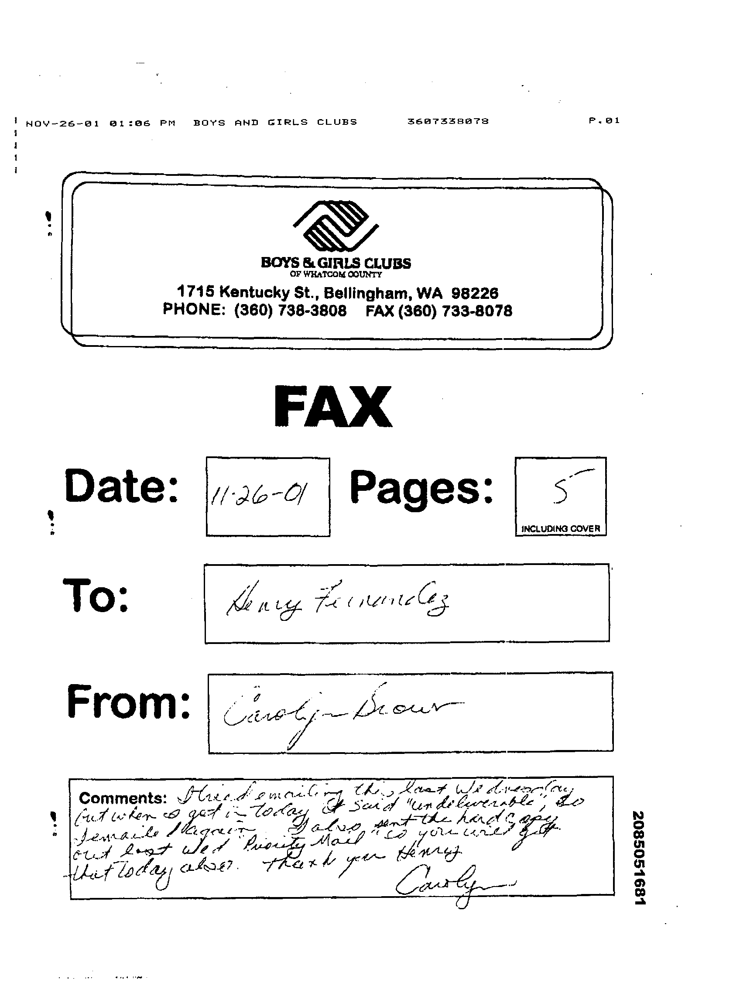 NOV-26-01 01:06 PM BOYS AND GIRLS CLUBS 3607338078 P.01
BOYS & GIRLS CLUBS
OF WHATCOM COUNTY
1715 Kentucky St., Bellingham, WA 98226
PHONE: (360) 738-3808 FAX (360) 733-8078
FAX
Date: 11-26-01 Pages: 5
INCLUDING COVER
To: Henry Fernandez
From: Carolyn Brown
Comments: I tried emailing this last Wednesday
but when I got in today it said "undeliverable", so
I emailed again. I also sent the hard copy
out last Wed "Priority Mail" so you will get
that today also?. Thank you Henry
Carolyn
2085051681